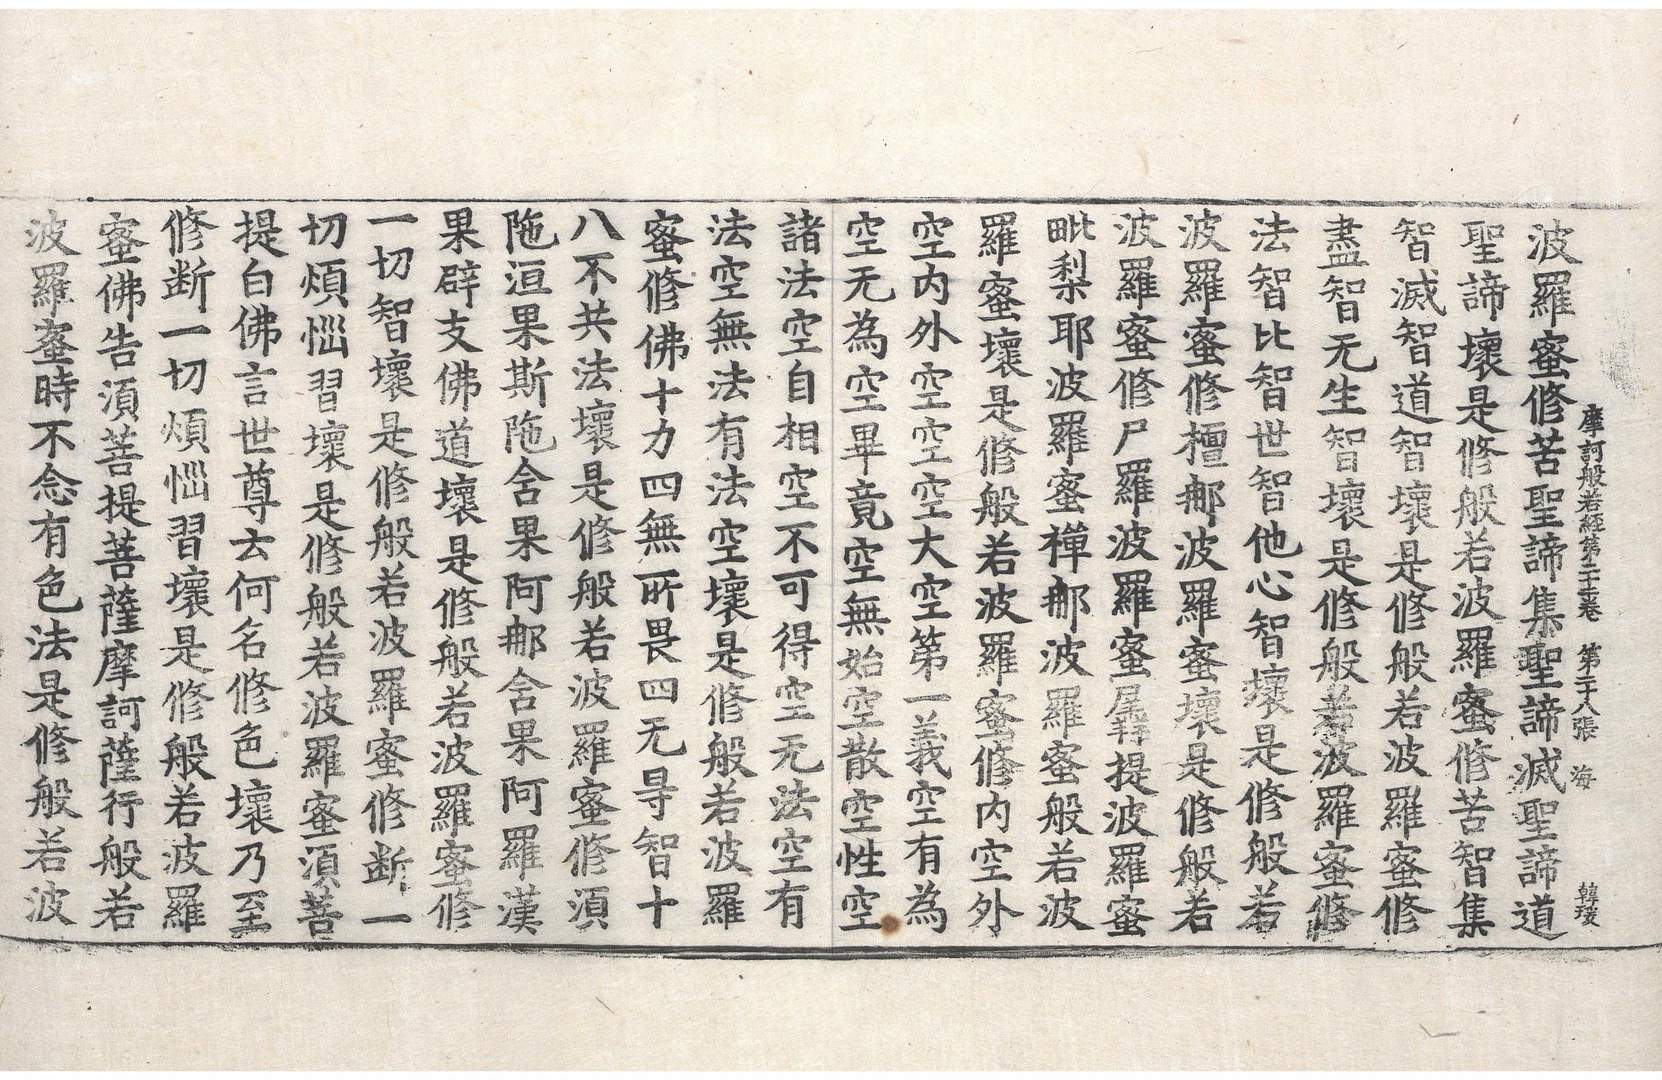 摩訶般若經第二十二卷 第二十八張 海 韓瑗
波羅蜜修苦聖諦集聖諦滅聖諦道
聖諦壞是修般若波羅蜜修苦智集
智滅智道智壞是修般若波羅蜜修
盡智无生智壞是修般若波羅蜜修
法智比智世智他心智壞是修般若
波羅蜜修檀那波羅蜜壞是修般若
波羅蜜修尸羅波羅蜜羼提波羅蜜
毗梨耶波羅蜜禪那波羅蜜般若波
羅蜜壞是修般若波羅蜜修內空外
空內外空空空大空第一義空有為
空无為空畢竟空無始空散空性空
諸法空自相空不可得空无法空有
法空無法有法空壞是修般若波羅
蜜修佛十力四無所畏四无㝵智十
八不共法壞是修般若波羅蜜修湏
陁洹果斯陁含果阿那含果阿羅漢
果辟支佛道壞是修般若波羅蜜修
一切智壞是修般若波羅蜜修断一
切煩惱習壞是修般若波羅蜜湏菩
提白佛言世尊云何名修色壞乃至
修断一切煩惱習壞是修般若波羅
蜜佛告湏菩提菩薩摩訶薩行般若
波羅蜜時不念有色法是修般若波